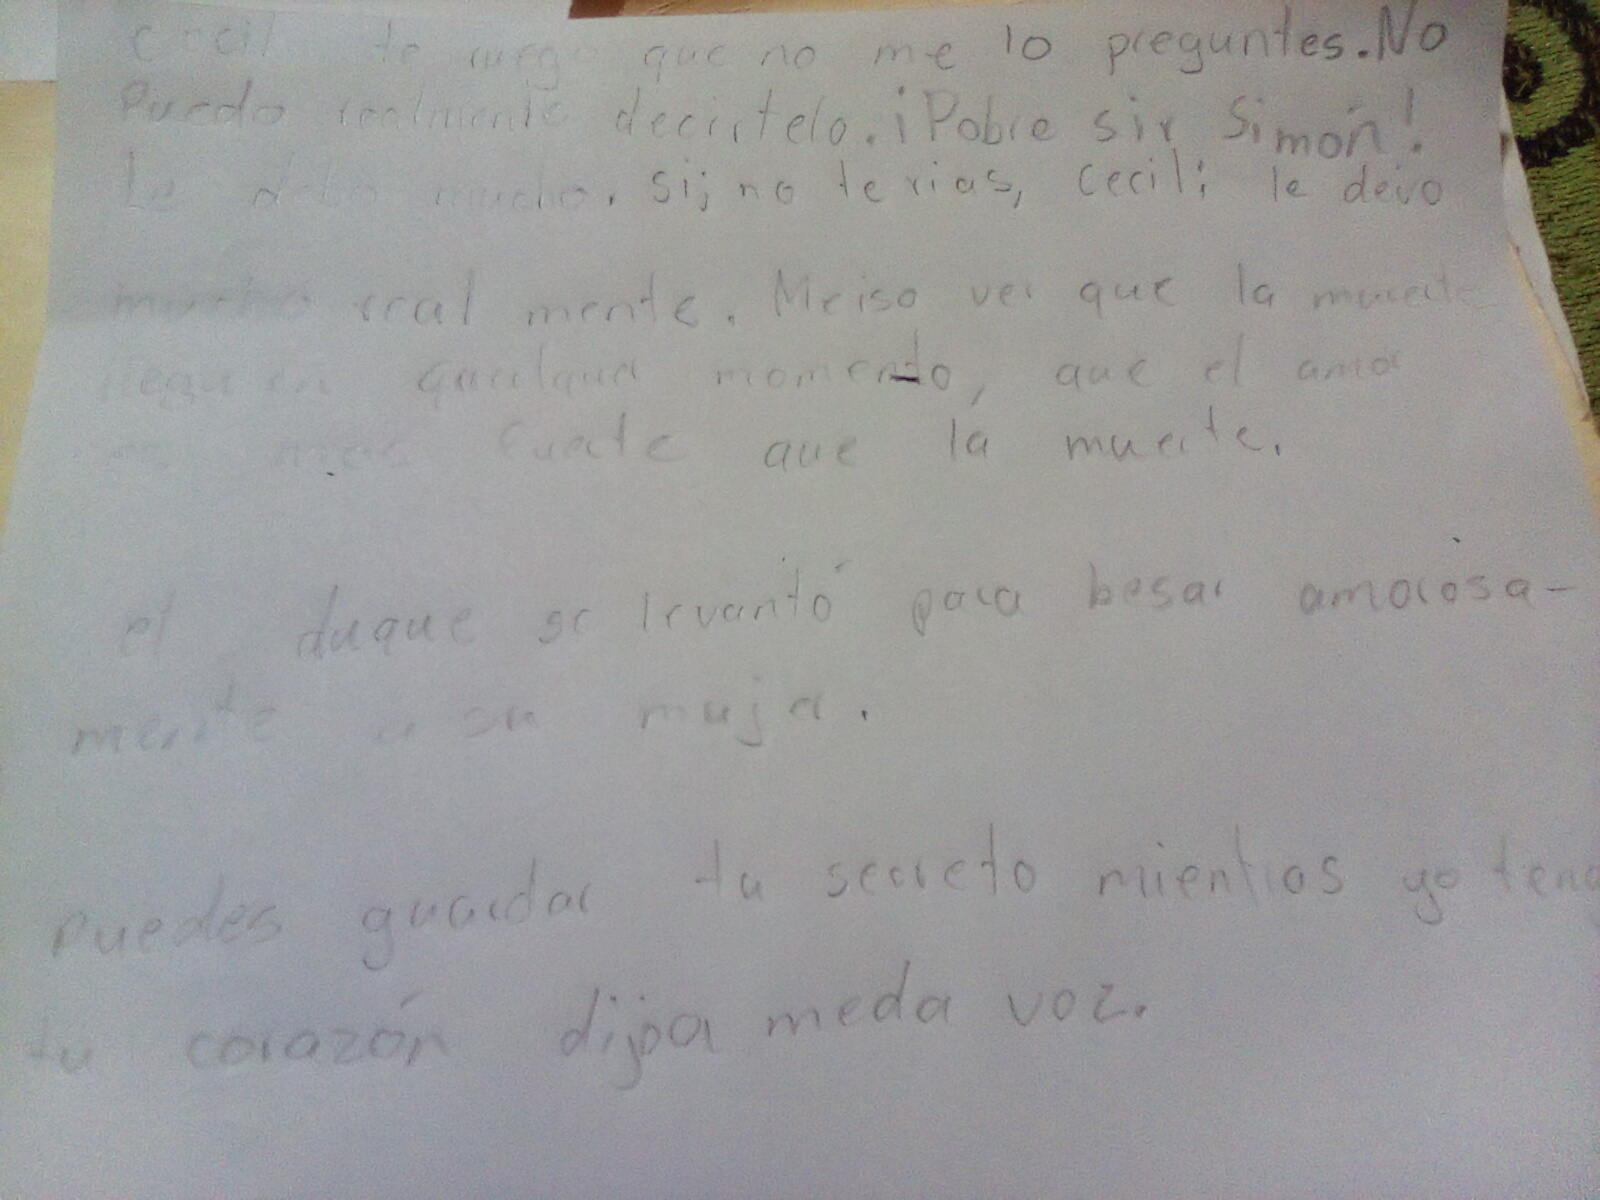 Cecil te ruego que no me lo preguntes. No
Puedo realmente decirtelo. ¡Pobre sir Simón!
Le debo mucho. si; no te rias, cecil; le devo
mucho real mente. Me iso ver que la muerte
llega en momento, que el amor
es mas fuerte que la muerte.
el duque se levantó para besar amorosa-
mente a su mujer.
Puedes guardar tu secreto mientras yo teng
tu corazón dijoa meda voz.